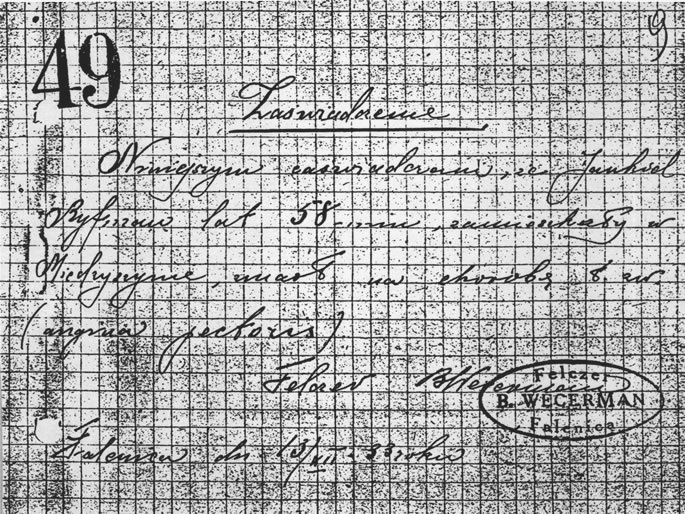 49 9
Zaświadczenie
Niniejszym zaświadczam, że Jankiel
lat 58-miu, zamieszkały w
zmarł na chorobę t. zw.
(angina pectoris)
Felczer BWegerman
Felczer
B. WEGERMAN
Falenica
Falenica dn 13/VII - 33 roku